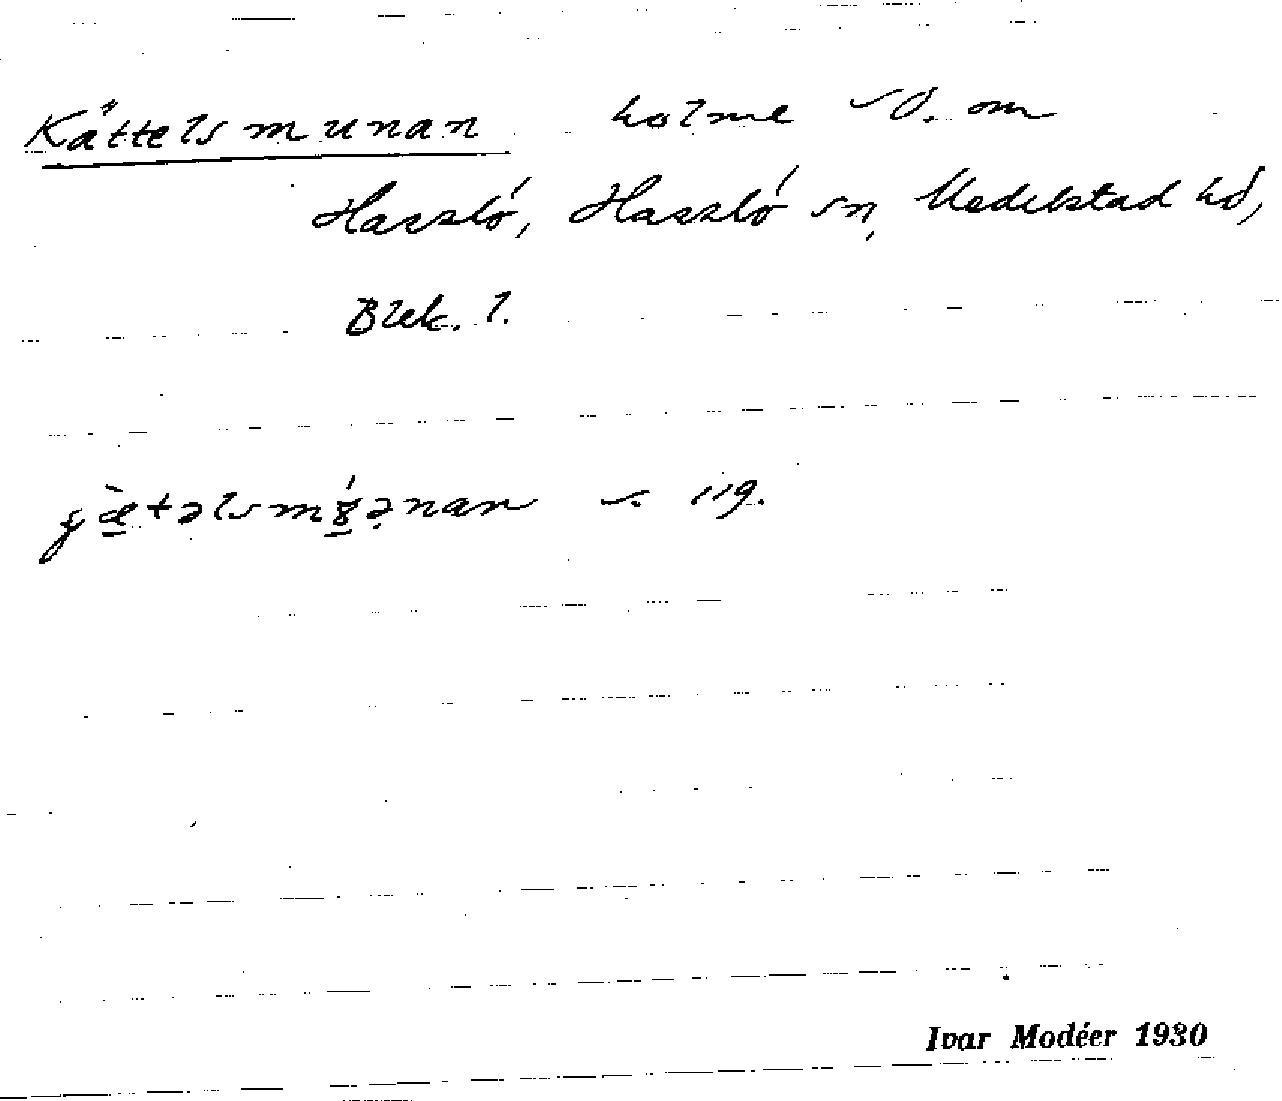 Kättelsmunan holme S.O. om
Hasslö, Hasslö sn, Medelstad hd,
Blek. l.
119.
Ivar Modéer 1930